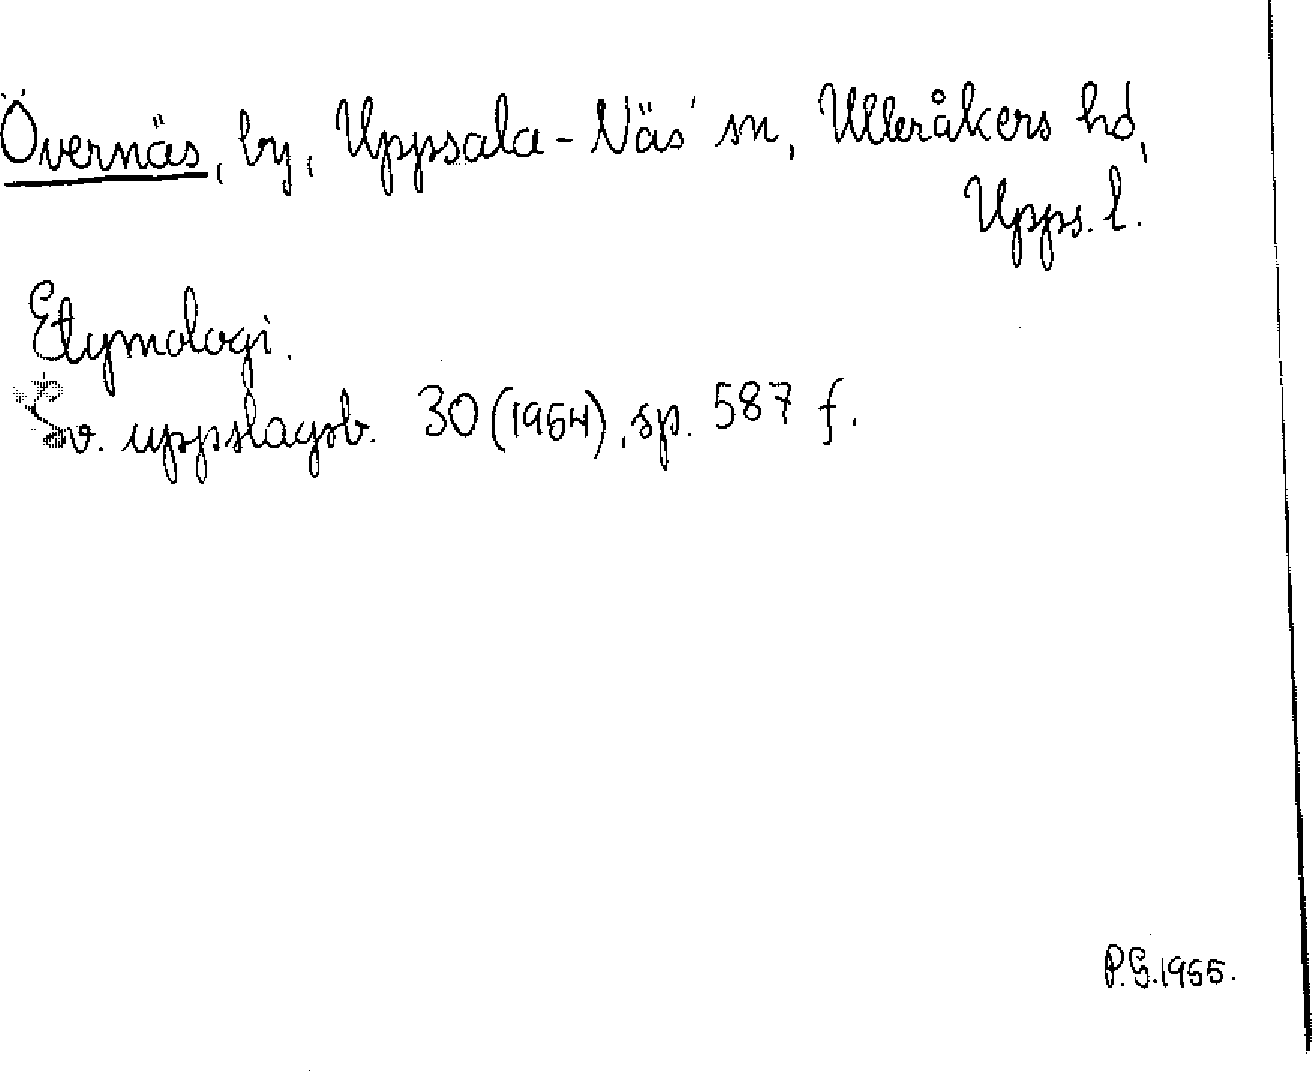 Övernäs, by, Uppsala-Näs' sn, Ulleråkers hd,
Upps. l.
Etymologi.
Sv. uppslagsb. 30 (1954), sp. 587 f.
P.G. 1955.